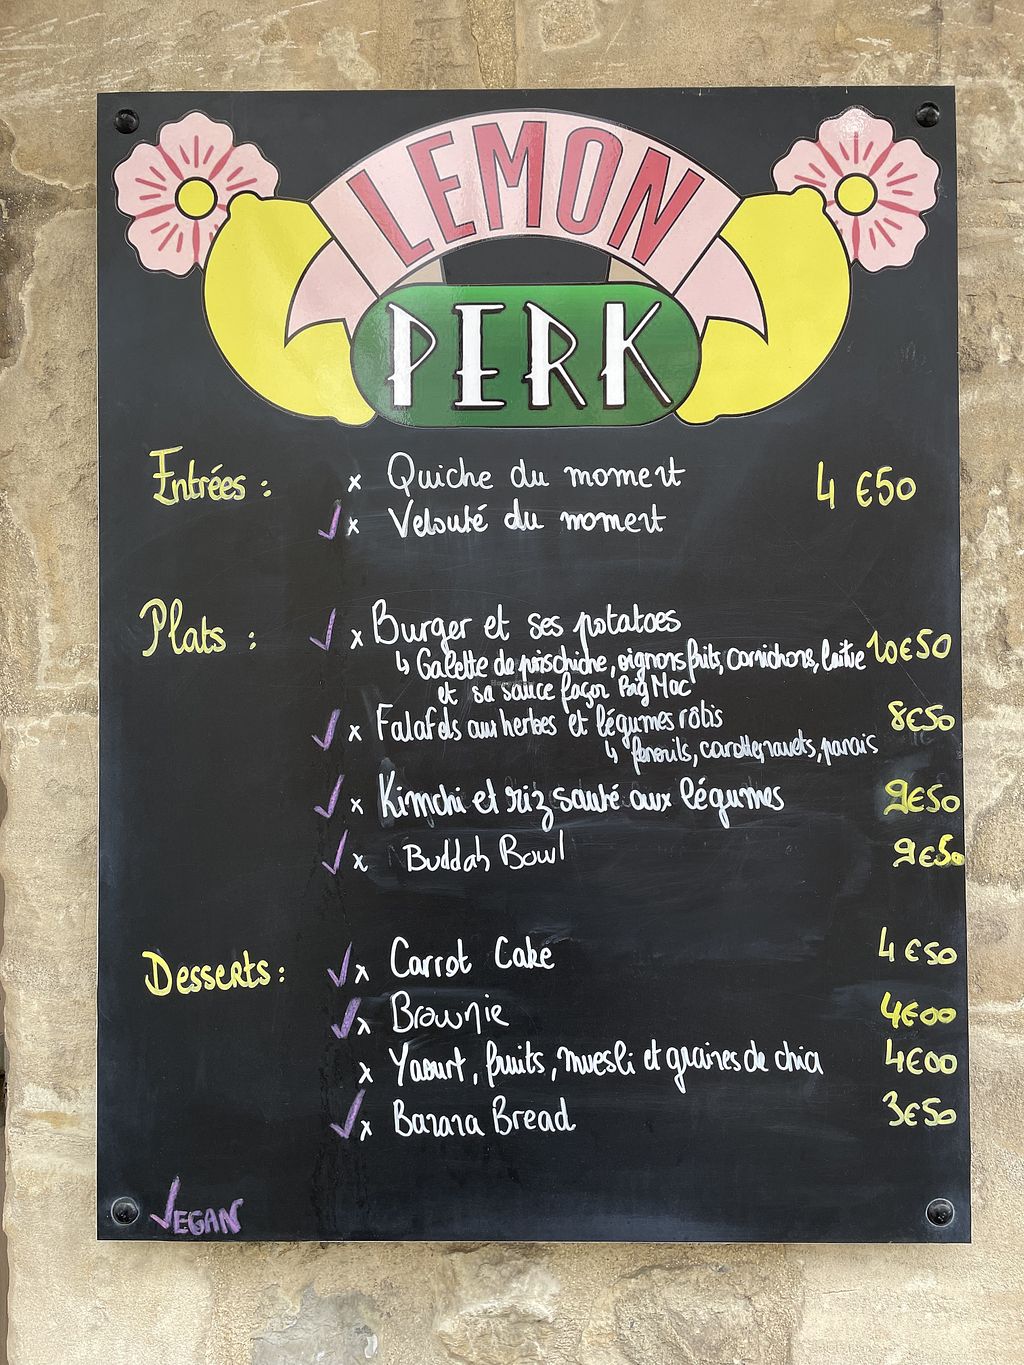 LEMON
PERK
Entrées : x Quiche du moment 4 €50
x Velouté du moment
Plats : x Burger et ses potatoes 10€50
↳ Galette de pois chiche, oignons frits, cornichons, laitue
et sa sauce façon Big Mac
x Falafels aux herbes et légumes rôtis 8€50
↳ fenouils, carottes, navets, panais
x Kimchi et riz sauté aux légumes 9€50
x Buddah Bowl 9€50
Desserts : x Carrot Cake 4€50
x Brownie 4€00
x Yaourt, fruits, muesli et graines de chia 4€00
x Banana Bread 3€50
VEGAN